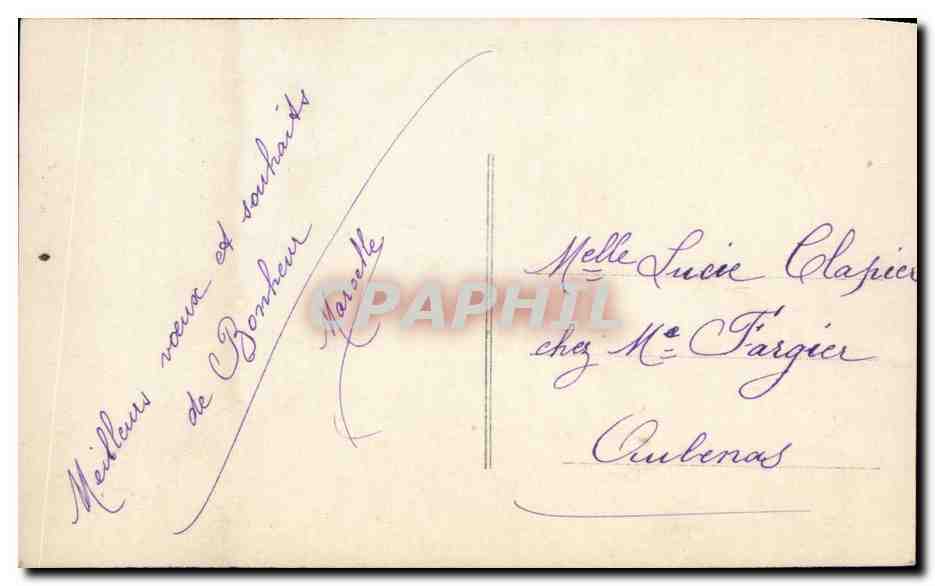 Meilleurs vœux et souhaits
de Bonheur
Marcelle
Melle Lucie Clapier
chez Me Fargier
Aubenas
CPAPHIL